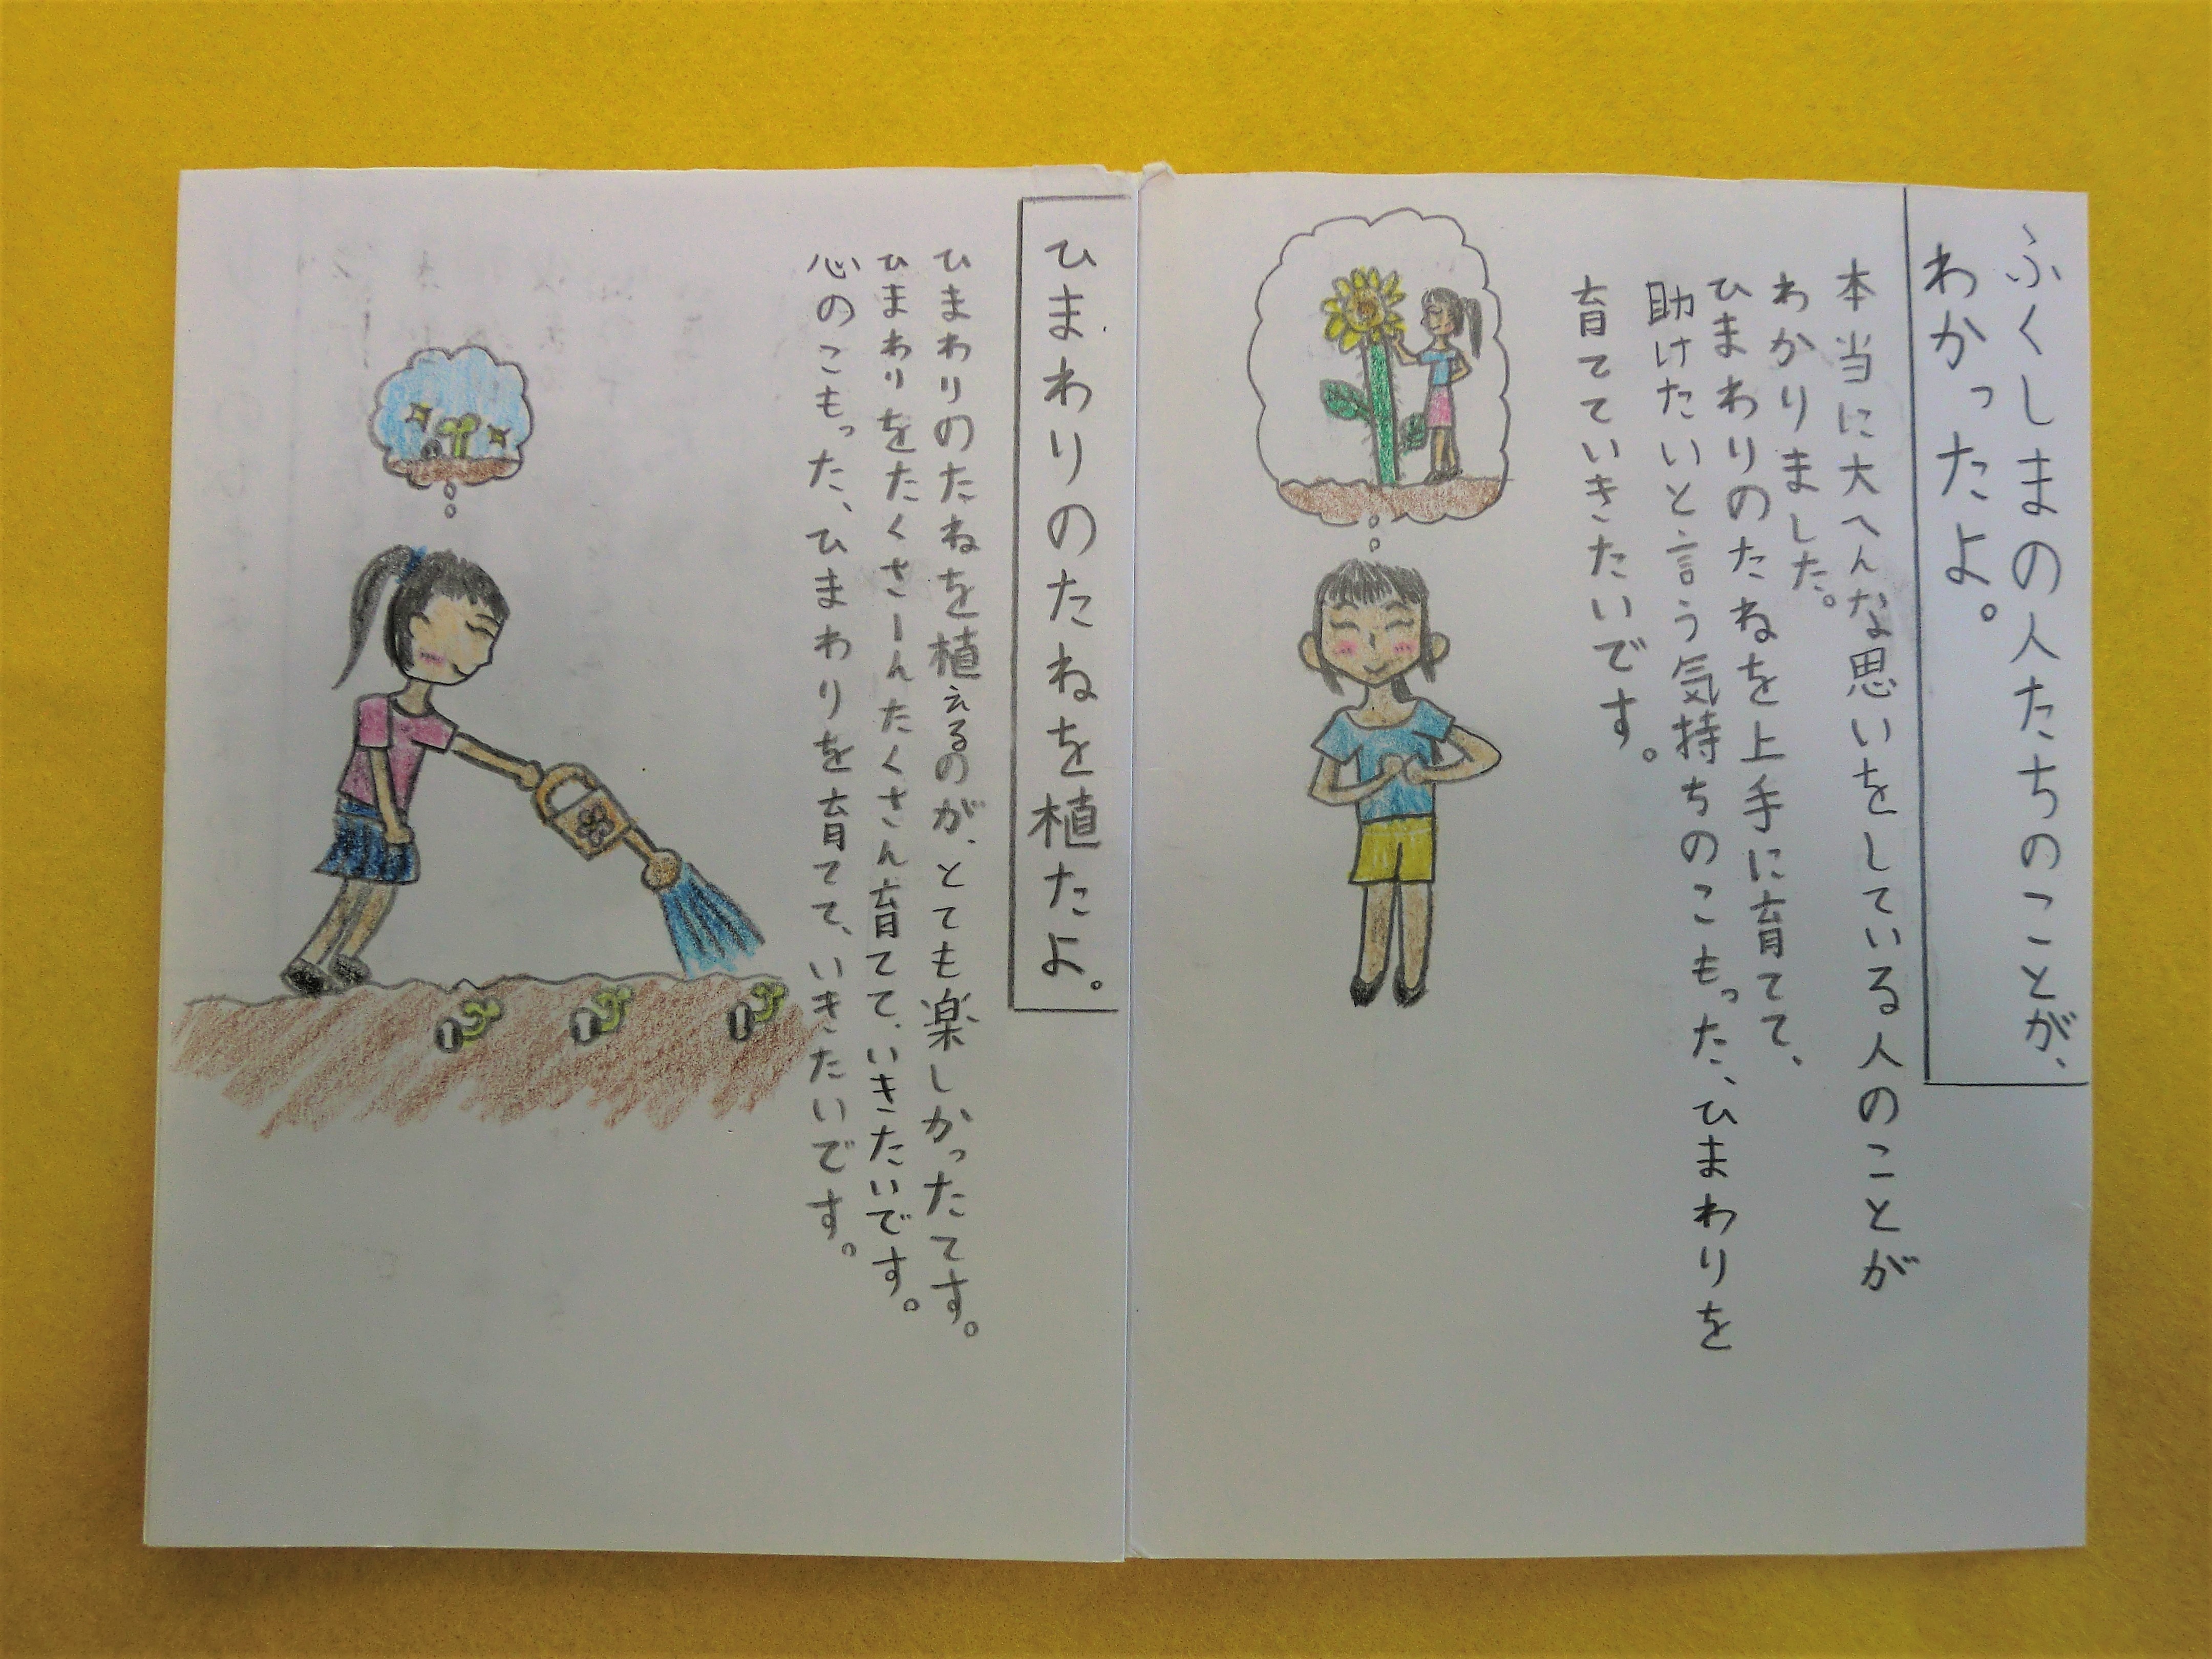 ふくしまの人たちのことが、
わかったよ。
本当に大へんな思いをしている人のことが
わかりました。
ひまわりのたねを上手に育てて、
助けたいと言う気持ちのこもった、ひまわりを
育てていきたいです。
ひまわりのたねを植たよ。
ひまわりのたねを植えるのが、とても楽しかったてす。
ひまわりをたくさーんたくさん育てて、いきたいです。
心のこもった、ひまわりを育てて、いきたいです。